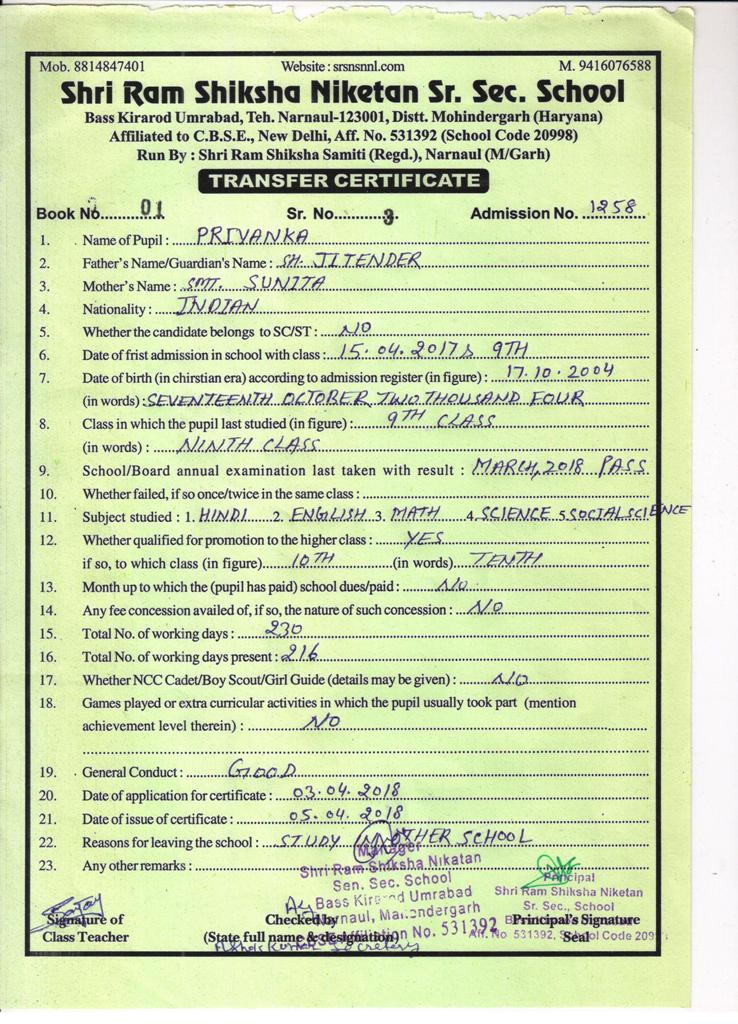 Mob. 8814847401 Website : srsnsnnl.com M. 9416076588
Shri Ram Shiksha Niketan Sr. Sec. School
Bass Kirarod Umrabad, Teh. Narnaul-123001, Distt. Mohindergarh (Haryana)
Affiliated to C.B.S.E., New Delhi, Aff. No. 531392 (School Code 20998)
Run By : Shri Ram Shiksha Samiti (Regd.), Narnaul (M/Garh)
TRANSFER CERTIFICATE
Book No. 01 Sr. No. 3. Admission No. 1258
1. Name of Pupil : PRIYANKA
2. Father's Name/Guardian's Name : SH. JITENDER
3. Mother's Name : SMT. SUNITA
4. Nationality : INDIAN
5. Whether the candidate belongs to SC/ST : NO
6. Date of frist admission in school with class : 15.04.2017 & 9TH
7. Date of birth (in chirstian era) according to admission register (in figure) : 17.10.2004
(in words) : SEVENTEENTH OCTOBER TWO THOUSAND FOUR
8. Class in which the pupil last studied (in figure) : 9TH CLASS
(in words) : NINTH CLASS
9. School/Board annual examination last taken with result : MARCH, 2018 PASS
10. Whether failed, if so once/twice in the same class :
11. Subject studied : 1. HINDI 2. ENGLISH 3. MATH 4. SCIENCE 5. SOCIAL SCIENCE
12. Whether qualified for promotion to the higher class : YES
if so, to which class (in figure) 10TH (in words) TENTH
13. Month up to which the (pupil has paid) school dues/paid : NO
14. Any fee concession availed of, if so, the nature of such concession : NO
15. Total No. of working days : 230
16. Total No. of working days present : 216
17. Whether NCC Cadet/Boy Scout/Girl Guide (details may be given) : NO
18. Games played or extra curricular activities in which the pupil usually took part (mention
achievement level therein) : NO
19. General Conduct : GOOD
20. Date of application for certificate : 03.04.2018
21. Date of issue of certificate : 05.04.2018
22. Reasons for leaving the school : STUDY OTHER SCHOOL
23. Any other remarks :
Manager
Shri Ram Shiksha Nikatan
Sen. Sec. School
Bass Kirarod Umrabad
Narnaul, Mahendergarh
Affiliation No. 531392
Principal
Shri Ram Shiksha Niketan
Sr. Sec., School
Aff. No 531392, School Code
Signature of Checked by Principal's Signature
Class Teacher (State full name & designation) Seal
Secretery